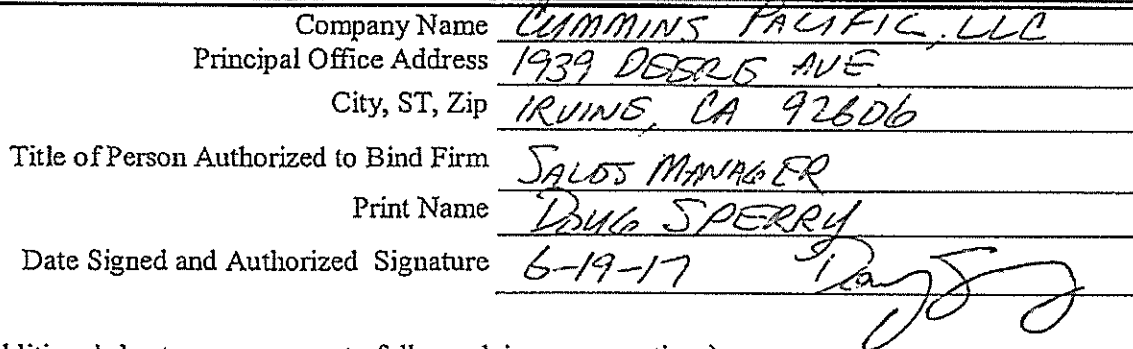 Company Name CUMMINS PACIFIC, LLC
Principal Office Address 1939 DEERE AVE
City, ST, Zip IRVINE, CA 92606
Title of Person Authorized to Bind Firm SALES MANAGER
Print Name DOUG SPERRY
Date Signed and Authorized Signature 6-19-17